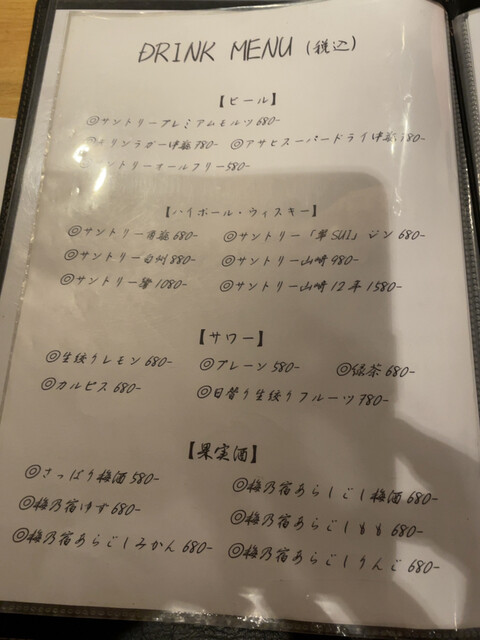 DRINK MENU (税込)
【ビール】
◎サントリープレミアムモルツ 680-
◎キリンラガー中瓶 780- ◎アサヒスーパードライ中瓶 780-
サントリーオールフリー 580-
【ハイボール・ウィスキー】
◎サントリー 680- ◎サントリー「翠SUI」ジン 680-
◎サントリー白州 880- ◎サントリー山崎 980-
◎サントリー響 1080- ◎サントリー山崎12年 1580-
【サワー】
◎生絞りレモン 680- ◎プレーン 580- ◎緑茶 680-
◎カルピス 680- ◎日替り生絞りフルーツ 780-
【果実酒】
◎さっぱり梅酒 580- ◎梅乃宿あらごし梅酒 680-
◎梅乃宿ゆず 680- ◎梅乃宿あらごしもも 680-
◎梅乃宿あらごしみかん 680- ◎梅乃宿あらごしりんご 680-